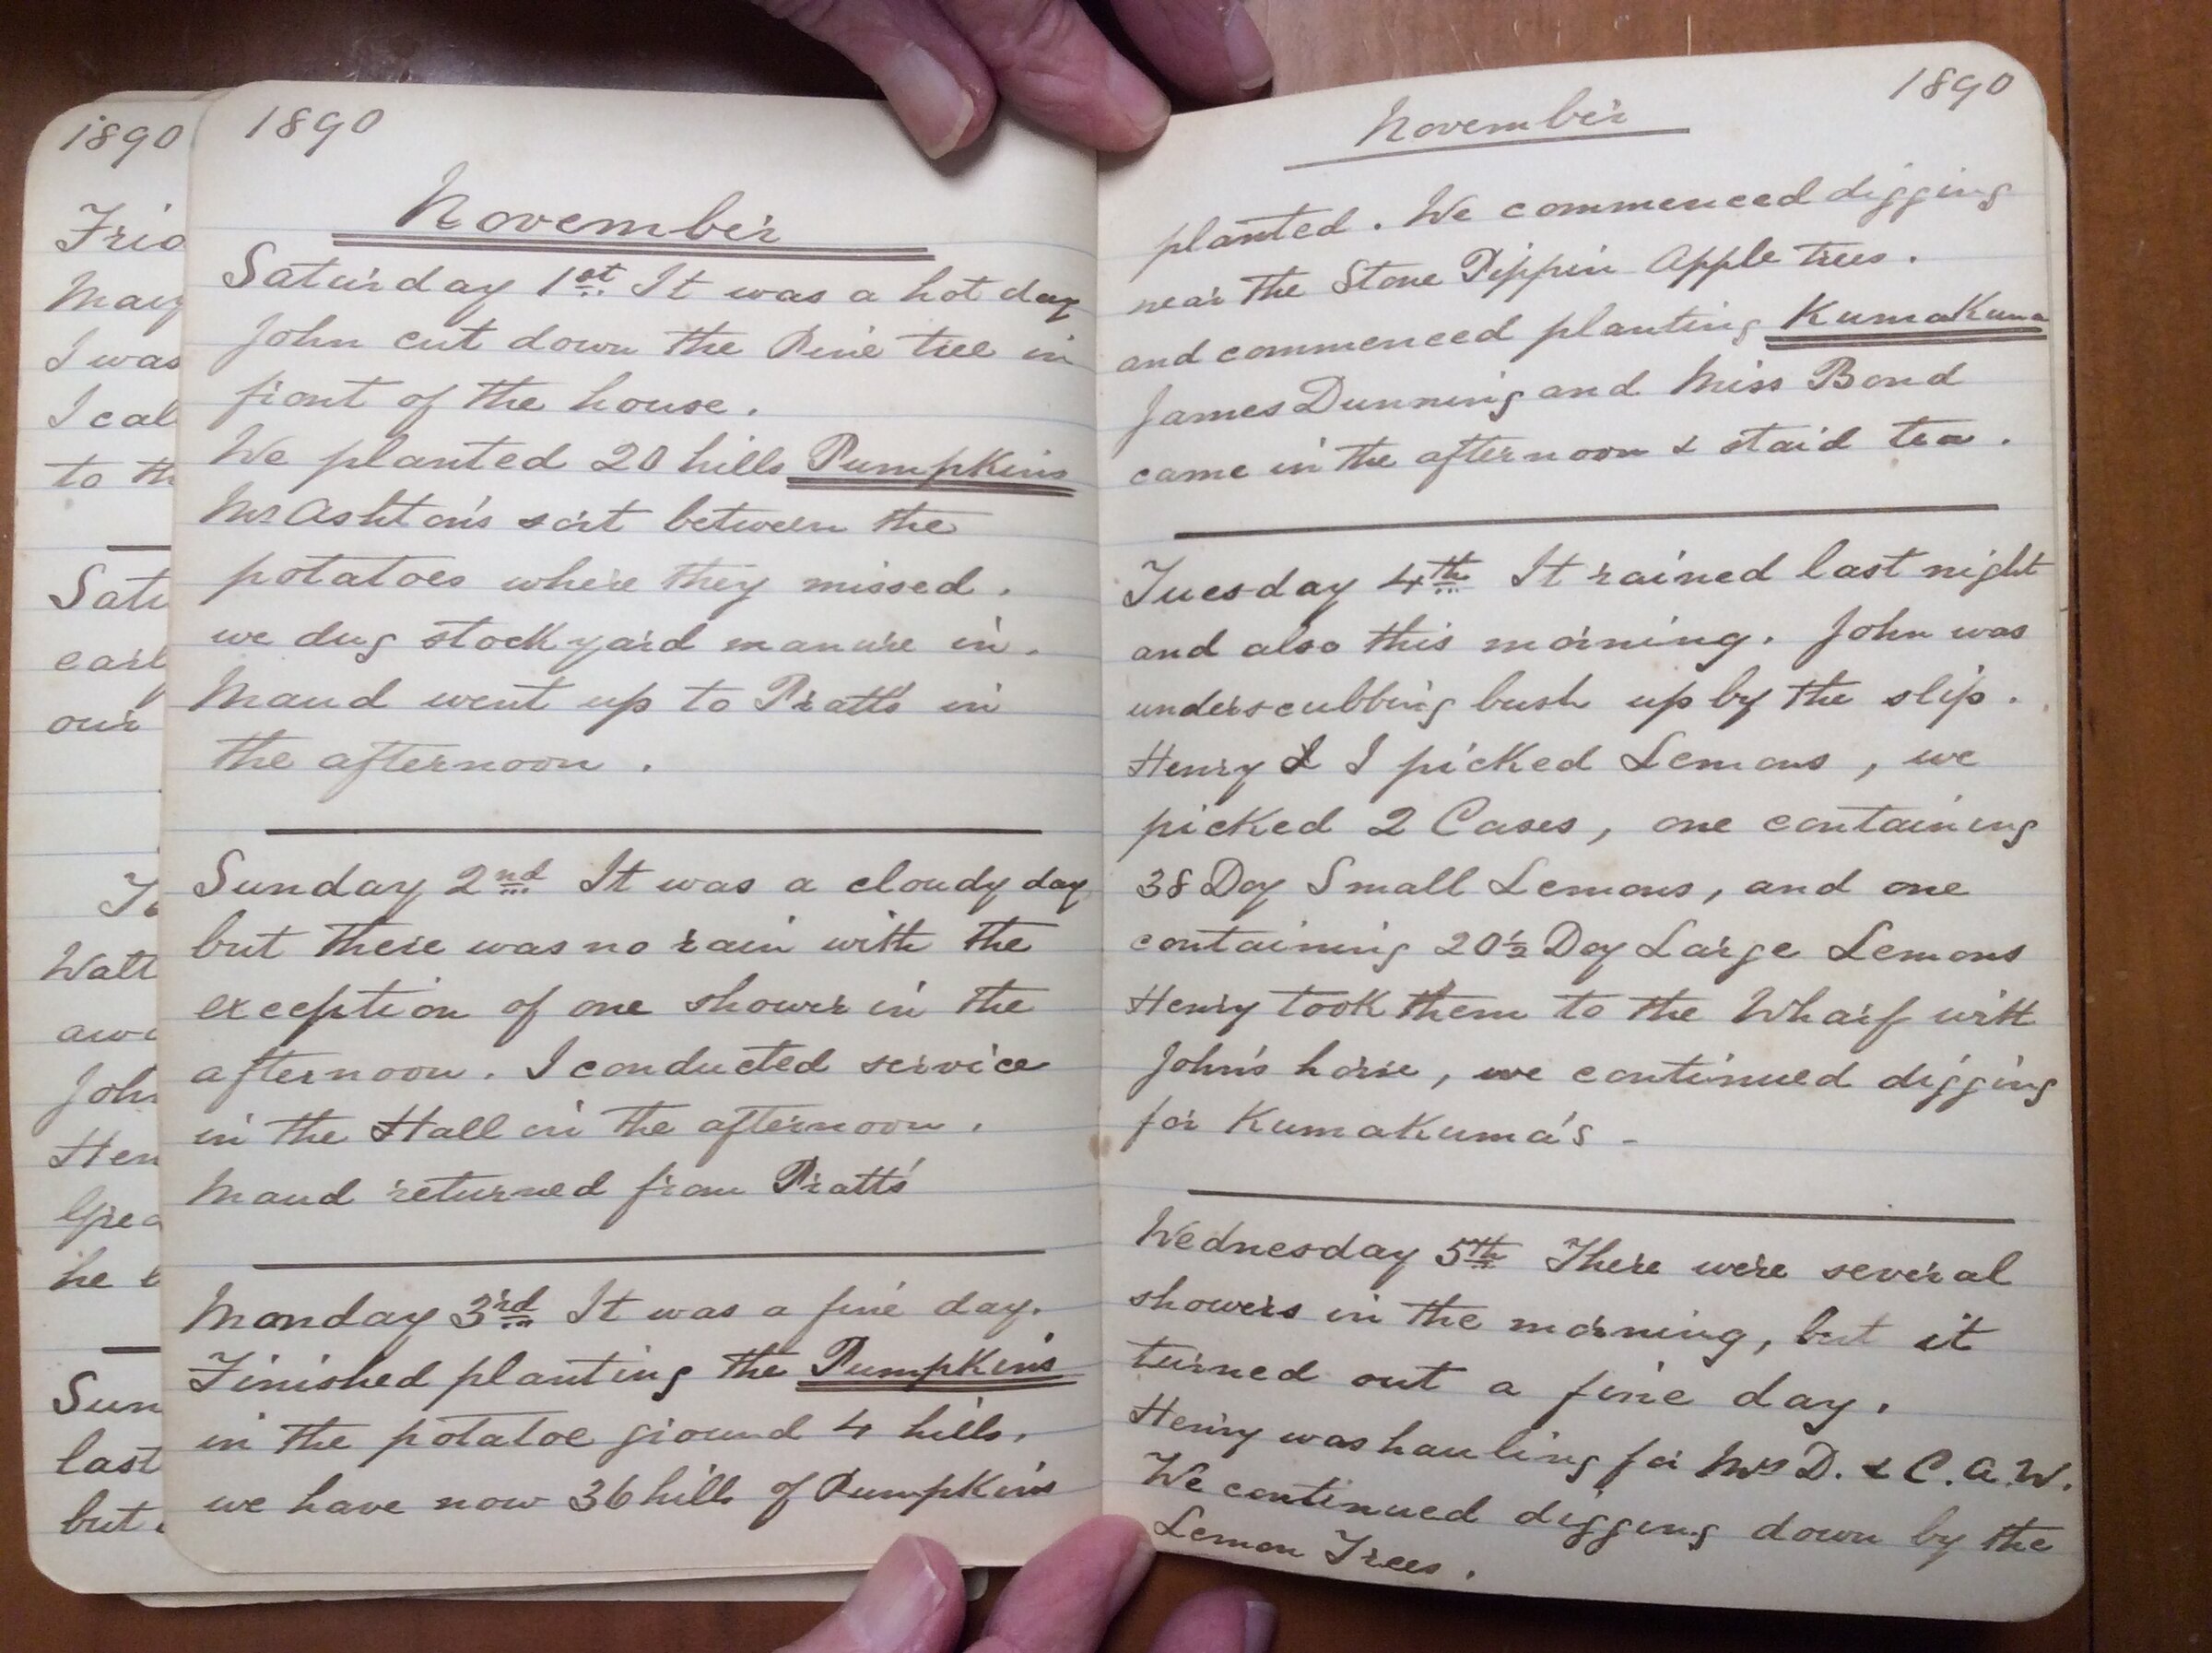 1890
Frid
Mary
I was
I cal
to th
Satu
earl
our
Walt
awa
John
Hen
Grea
he b
Sun
last
but
1890
November
Saturday 1st It was a hot day
John cut down the Pine tree in
front of the house.
We planted 20 hills Pumpkins
Mr Ashton's sort between the
potatoes where they missed.
we dug stockyard manure in.
Maud went up to Pratts' in
the afternoon.
Sunday 2nd It was a cloudy day
but there was no rain with the
exception of one shower in the
afternoon. I conducted service
in the Hall in the afternoon.
Maud returned from Pratts'
Monday 3rd It was a fine day.
Finished planting the Pumpkins
in the potatoe ground 4 hills.
we have now 36 hills of Pumpkins
1890
November
planted. We commenced digging
near the Stone Pippin Apple trees.
and commenced planting KumaKuma
James Dunning and Miss Bond
came in the afternoon & staid tea.
Tuesday 4th It rained last night
and also this morning. John was
underscubbing bush up by the slip.
Henry & I picked Lemons, we
picked 2 Cases, one containing
38 Doz Small Lemons, and one
containing 20½ Doz Large Lemons
Henry took them to the Wharf with
John's horse, we continued digging
for KumaKuma's -
Wednesday 5th There were several
showers in the morning, but it
turned out a fine day.
Henry was hauling for Mrs D. & C. A. W.
We continued digging down by the
Lemon Trees.